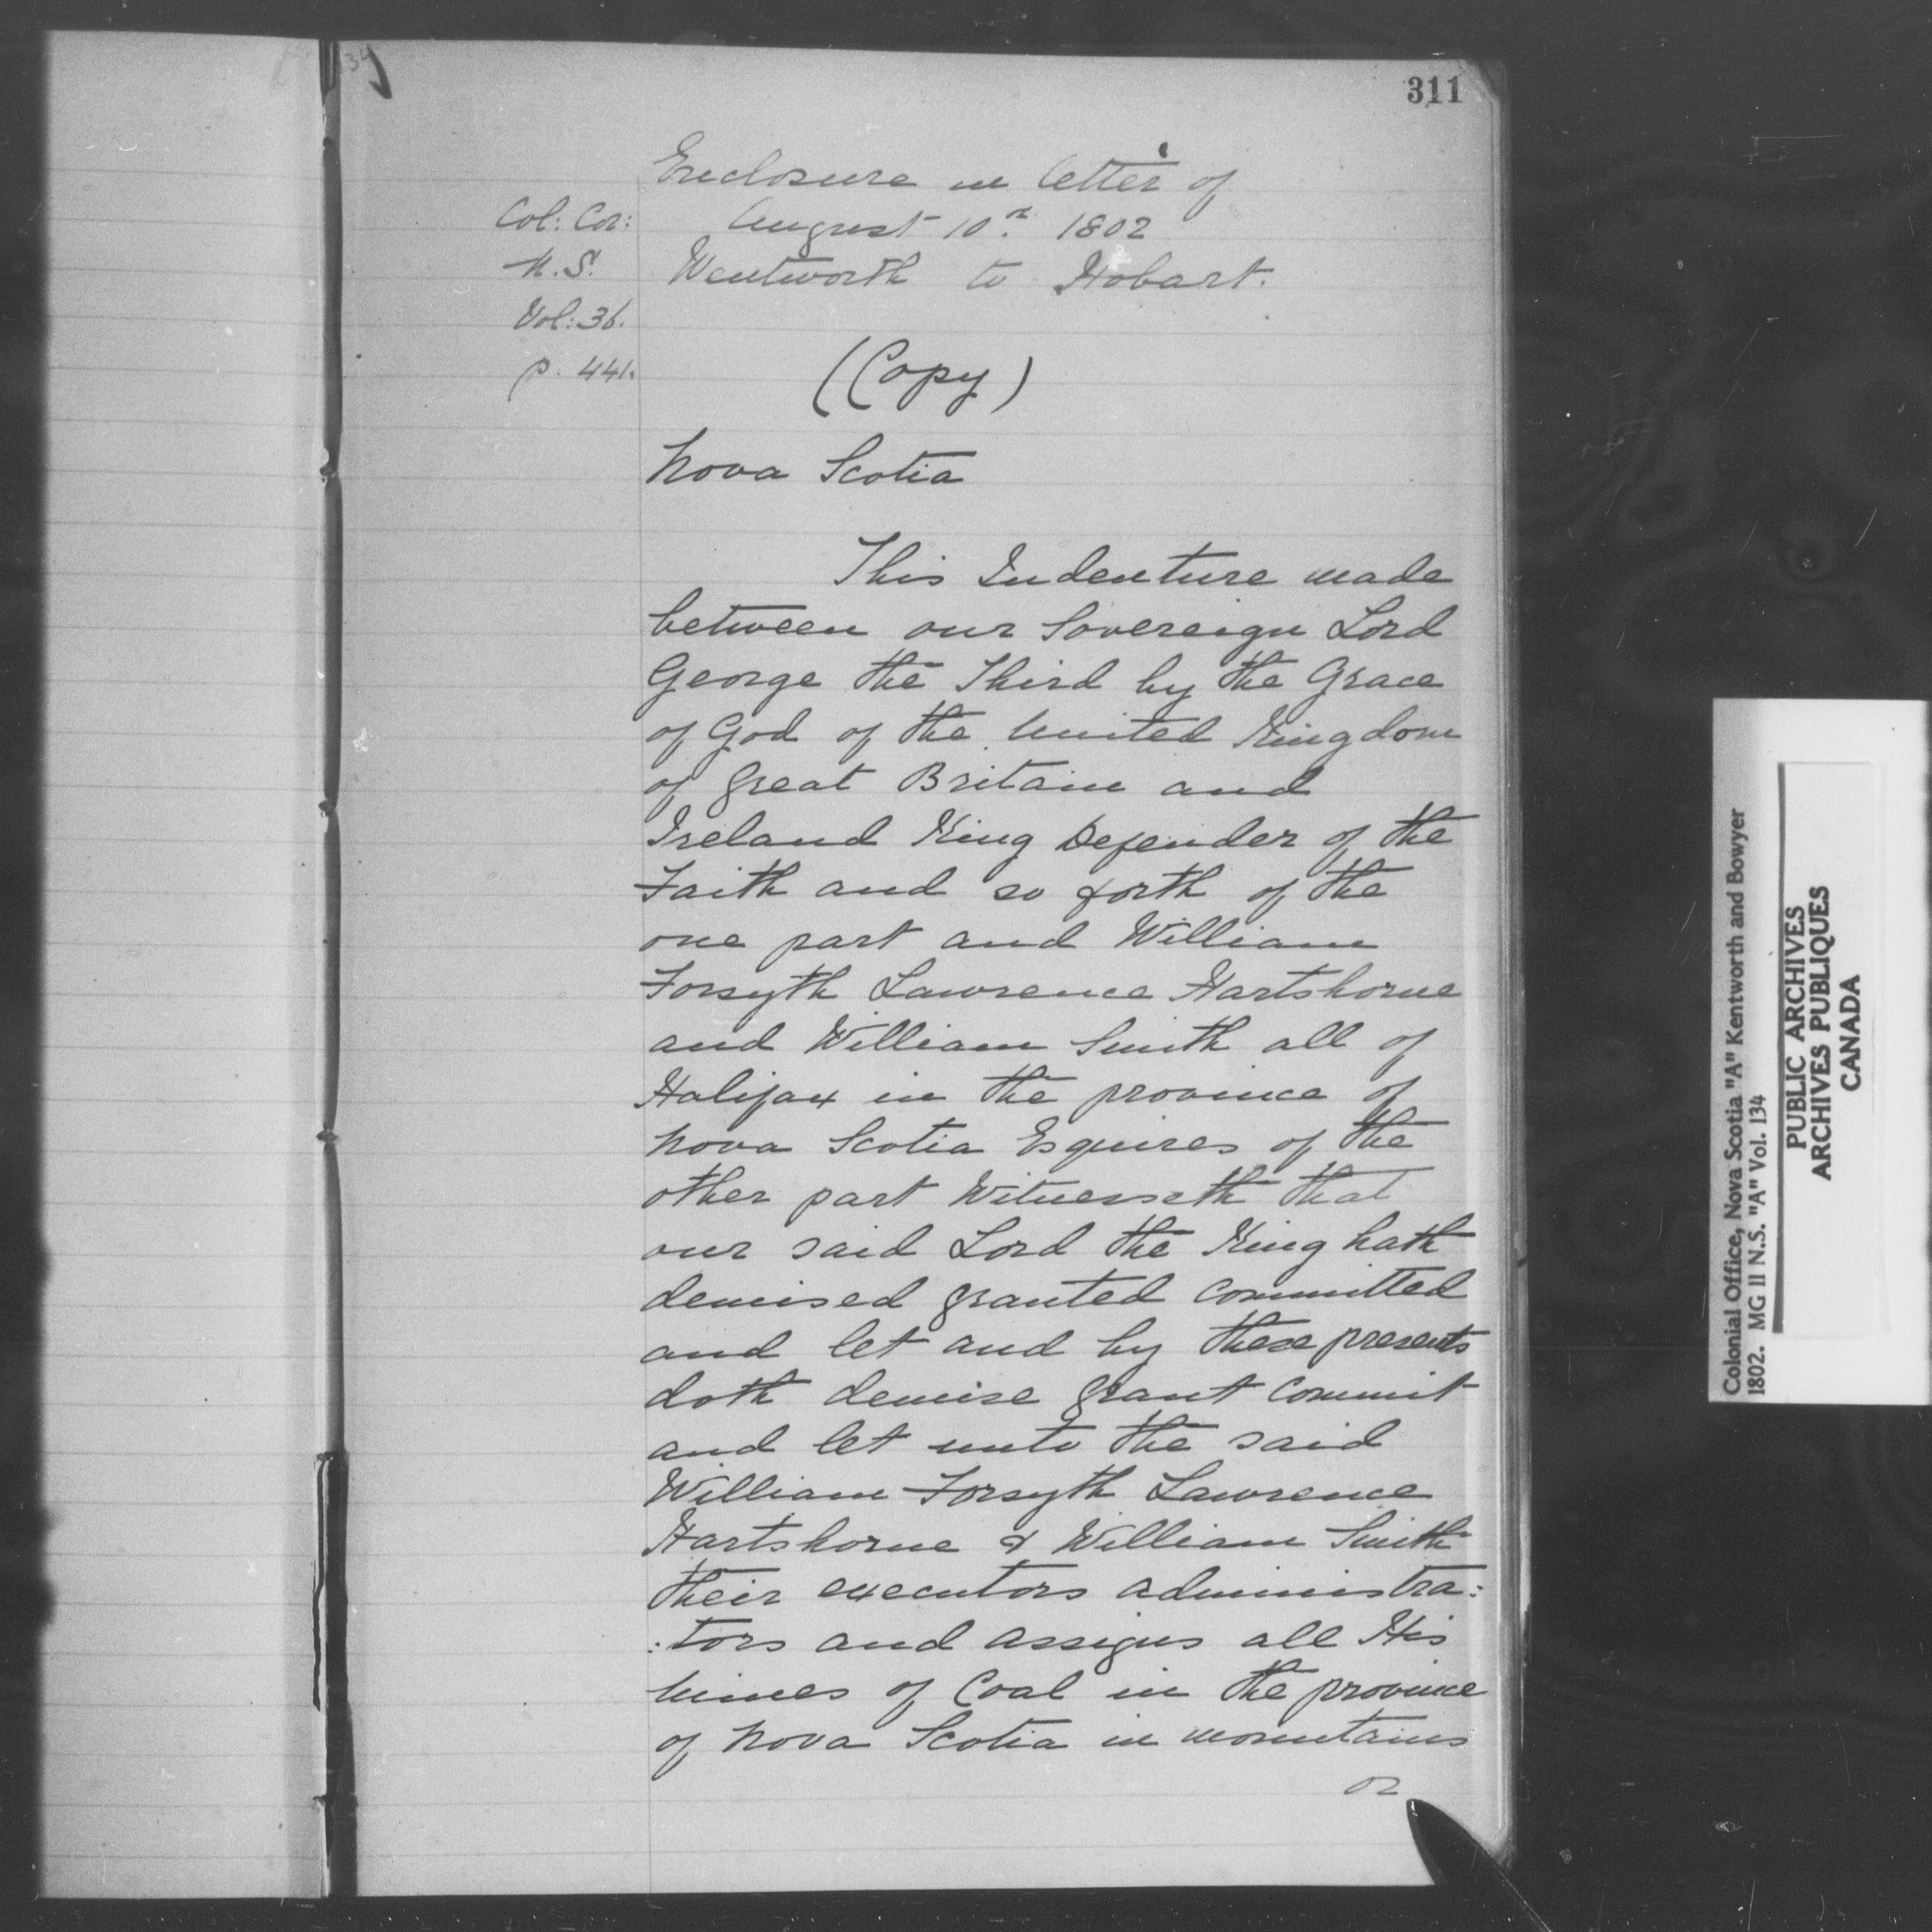 311
Enclosure in letter of
August 10th 1802
Wentworth to Hobart.
Col: Cor:
N.S.
Vol: 36.
p. 441.
(Copy)
Nova Scotia
This Indenture made
between our Sovereign Lord
George the Third by the Grace
of God of the United Kingdom
of Great Britain and
Ireland King Defender of the
Faith and so forth of the
one part and William
Forsyth Lawrence Hartshorne
and William Smith all of
Halifax in the province of
Nova Scotia Esquires of the
other part Witnesseth that
our said Lord the King hath
demised granted committed
and let and by these presents
doth demise grant commit
and let unto the said
William Forsyth Lawrence
Hartshorne & William Smith
their executors administra:
:tors and assigns all His
Mines of Coal in the province
of Nova Scotia in mountains
or
Colonial Office, Nova Scotia "A" Kentworth and Bowyer
1802. MG II N.S. "A" Vol. 134
PUBLIC ARCHIVES
ARCHIVES PUBLIQUES
CANADA